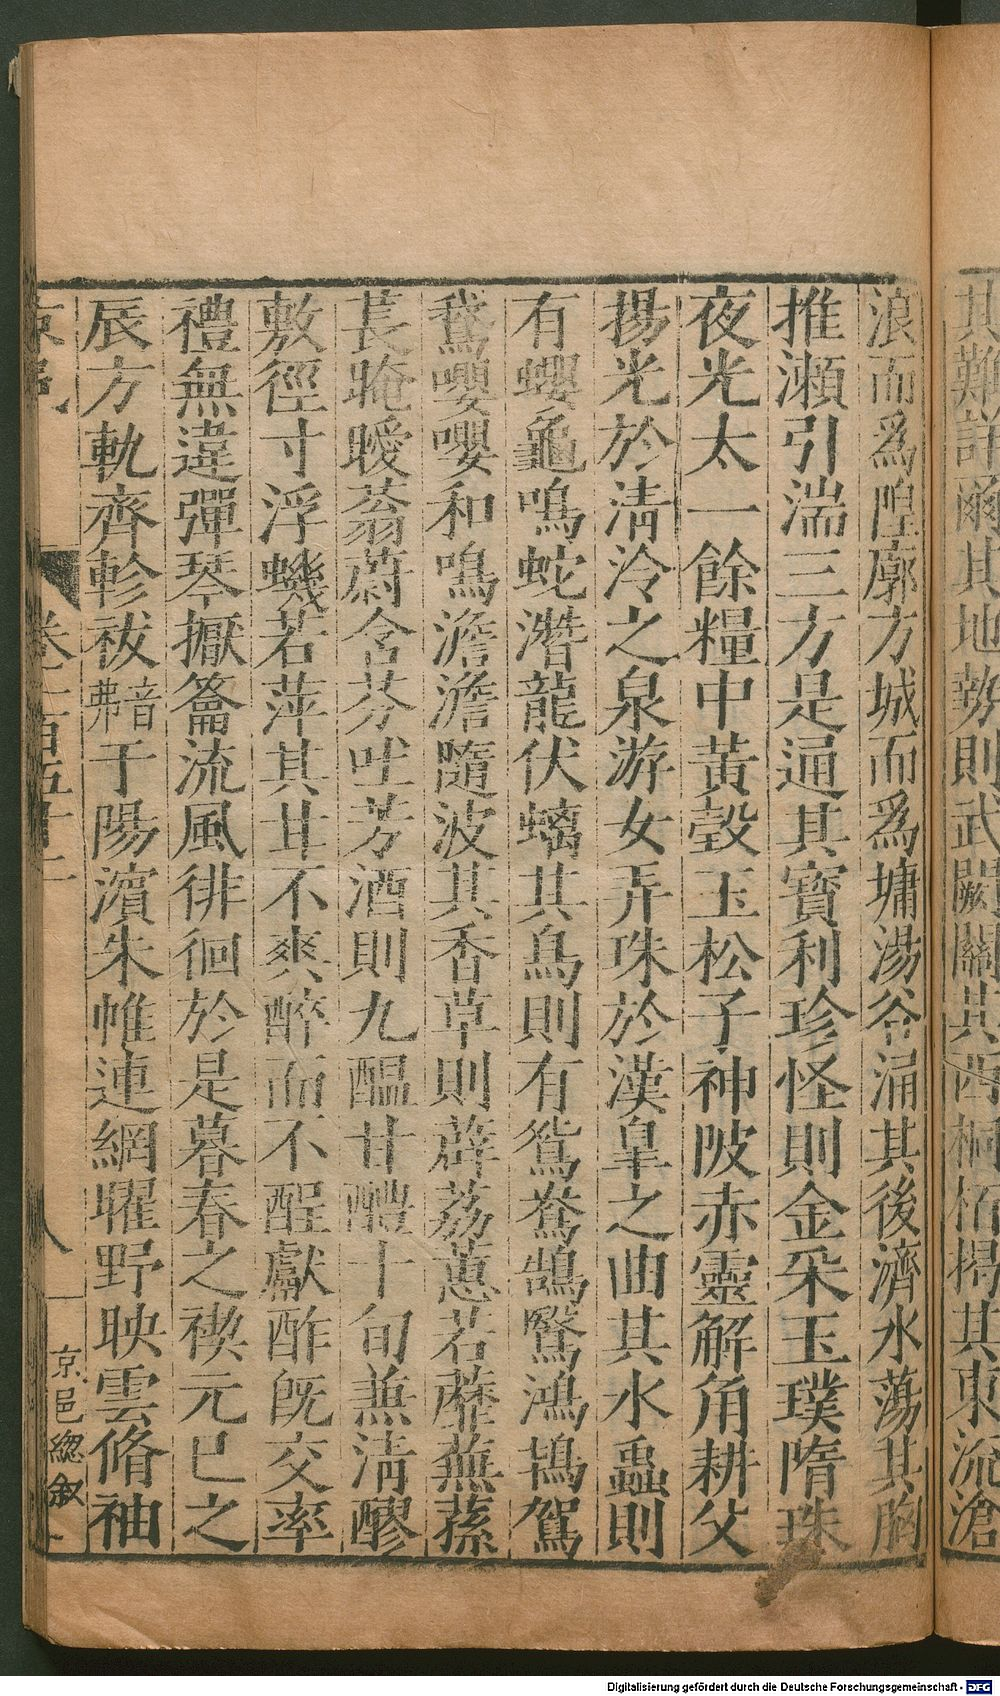 其難詳爾其地勢則武闕關其西桐栢揭其東流滄
浪而爲隍廓方城而爲墉湯谷涌其後濟水蕩其胸
推瀨引湍三方是通其寳利珍怪則金采玉璞隋珠
夜光太一餘糧中黄瑴玉松子神陂赤靈解角耕父
揚光於清泠之泉游女弄珠於漢臯之曲其水蟲則
有蠳龜鳴蛇潛龍伏螭其鳥則有鴛鴦鵠鷖鴻鴇駕
鵞嚶嚶和鳴澹澹隨波其香草則薜荔蕙若蘼蕪蓀
萇晻曖蓊蔚含芬吐芳酒則九醖甘醴十旬兼清醪
敷徑寸浮蟣若萍其甘不爽醉而不酲獻酢旣交率
禮無違彈琴擫籥流風徘徊於是暮春之禊元巳之
辰方軌齊軫祓音弗于陽濵朱帷連網曜野映雲脩袖
京邑
卷一百五十一
八
京邑緫叙
Digitalisierung gefördert durch die Deutsche Forschungsgemeinschaft - DFG